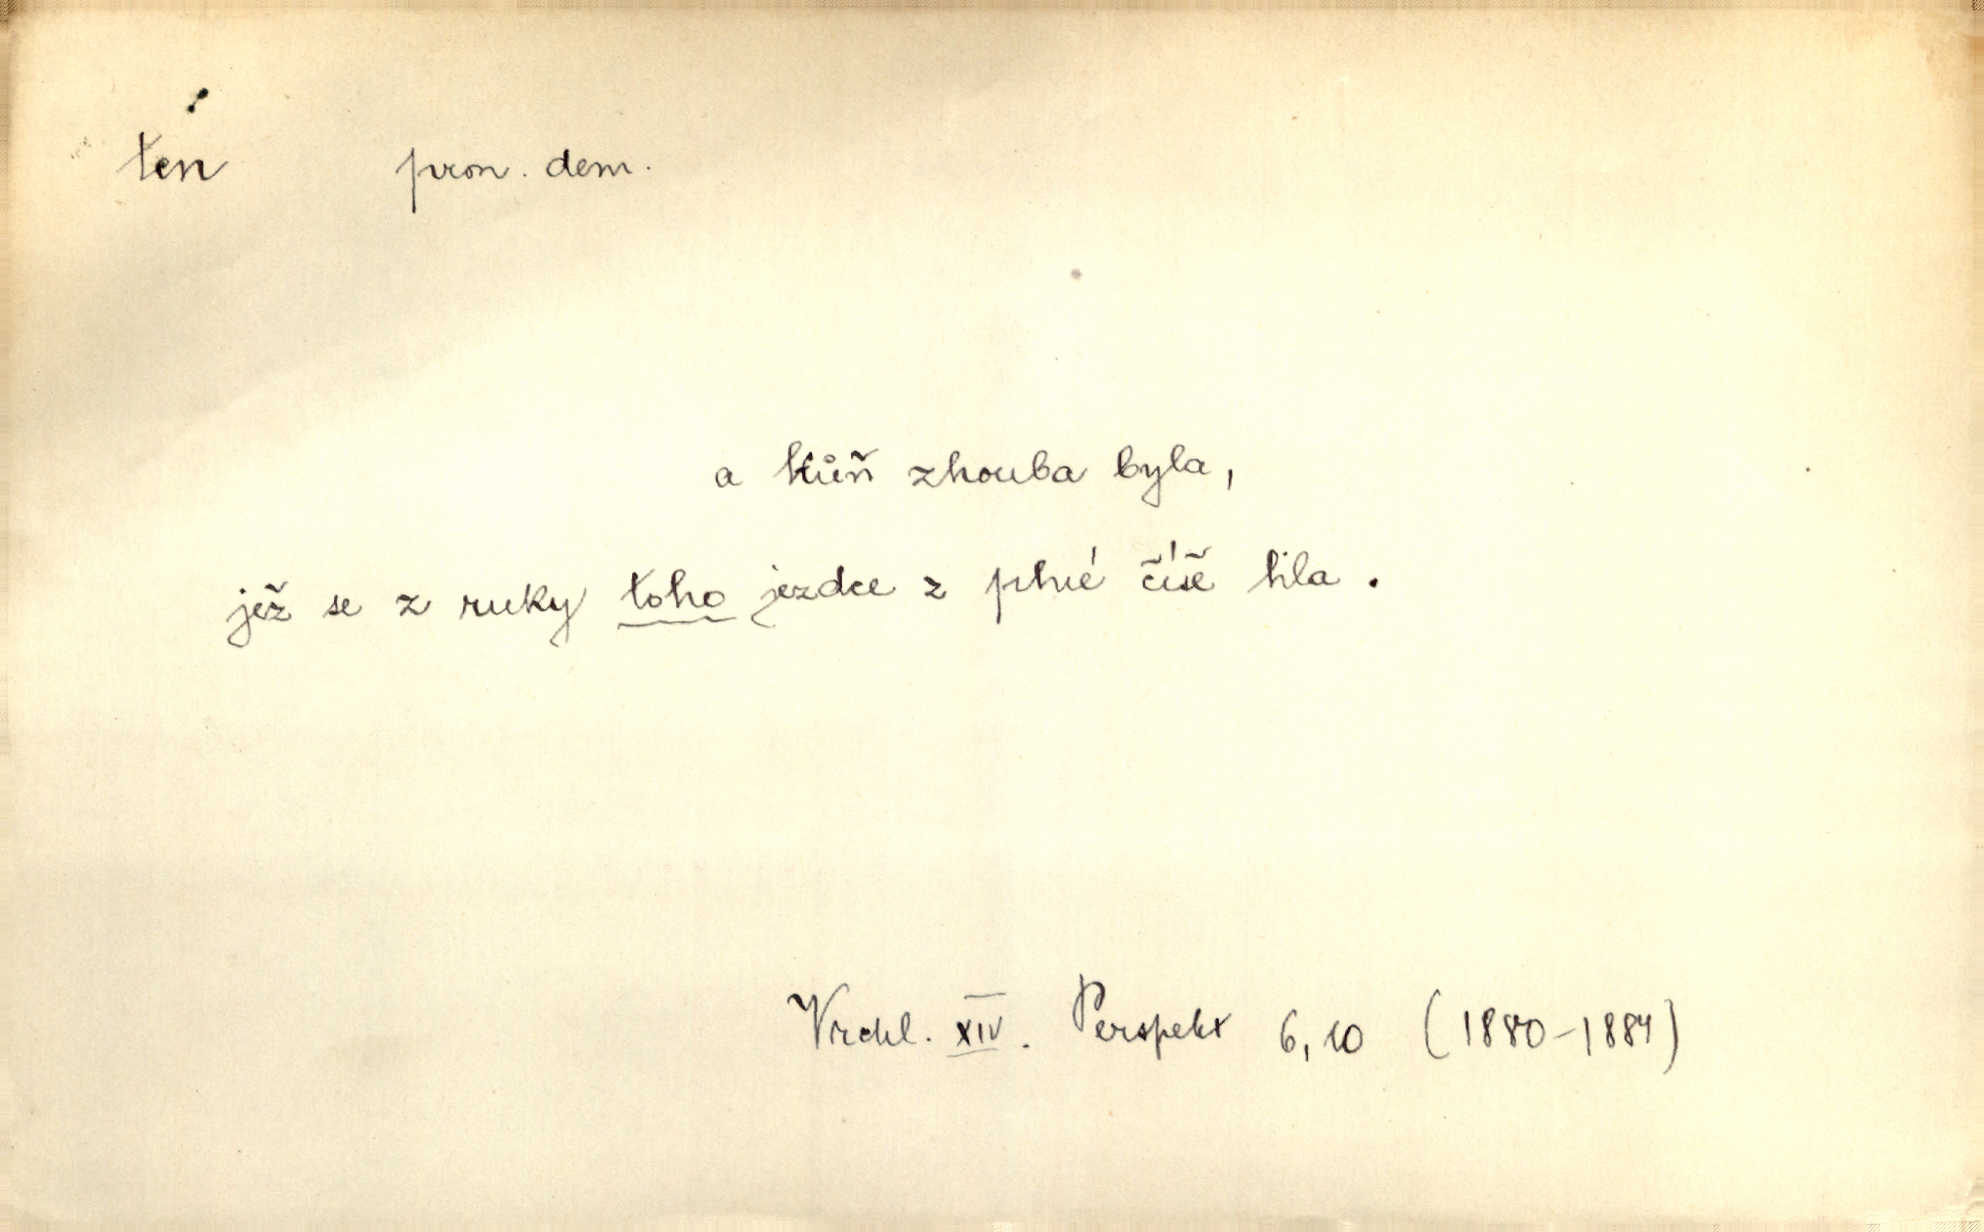 ten pron. dem.
a kůň zhouba byla,
jež se z ruky toho jezdce z plné číše lila.
Vrchl. XIV. Perspekt 6,10 (1880–1884)